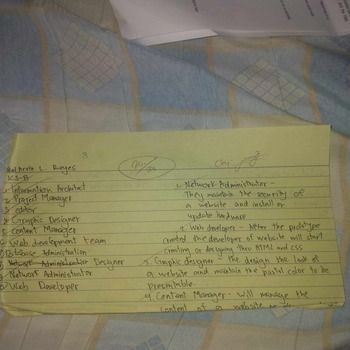 L. Reyes
Information Architect
Project Manager
editor
Graphic Designer
Content Manager
Web development team
Database Administration
Designer
Network Administrator
Web Developer
Network Administrator -
They maintain the security of
a website and install or
update hardware
Web developer - After the prototype
created the developer of website will start
creating or designing thru HTML and CSS
Graphic designer - The design the look of
a website and maintain the pastal color to be
presentable
4 Content Manager - Will manage the
content of a website